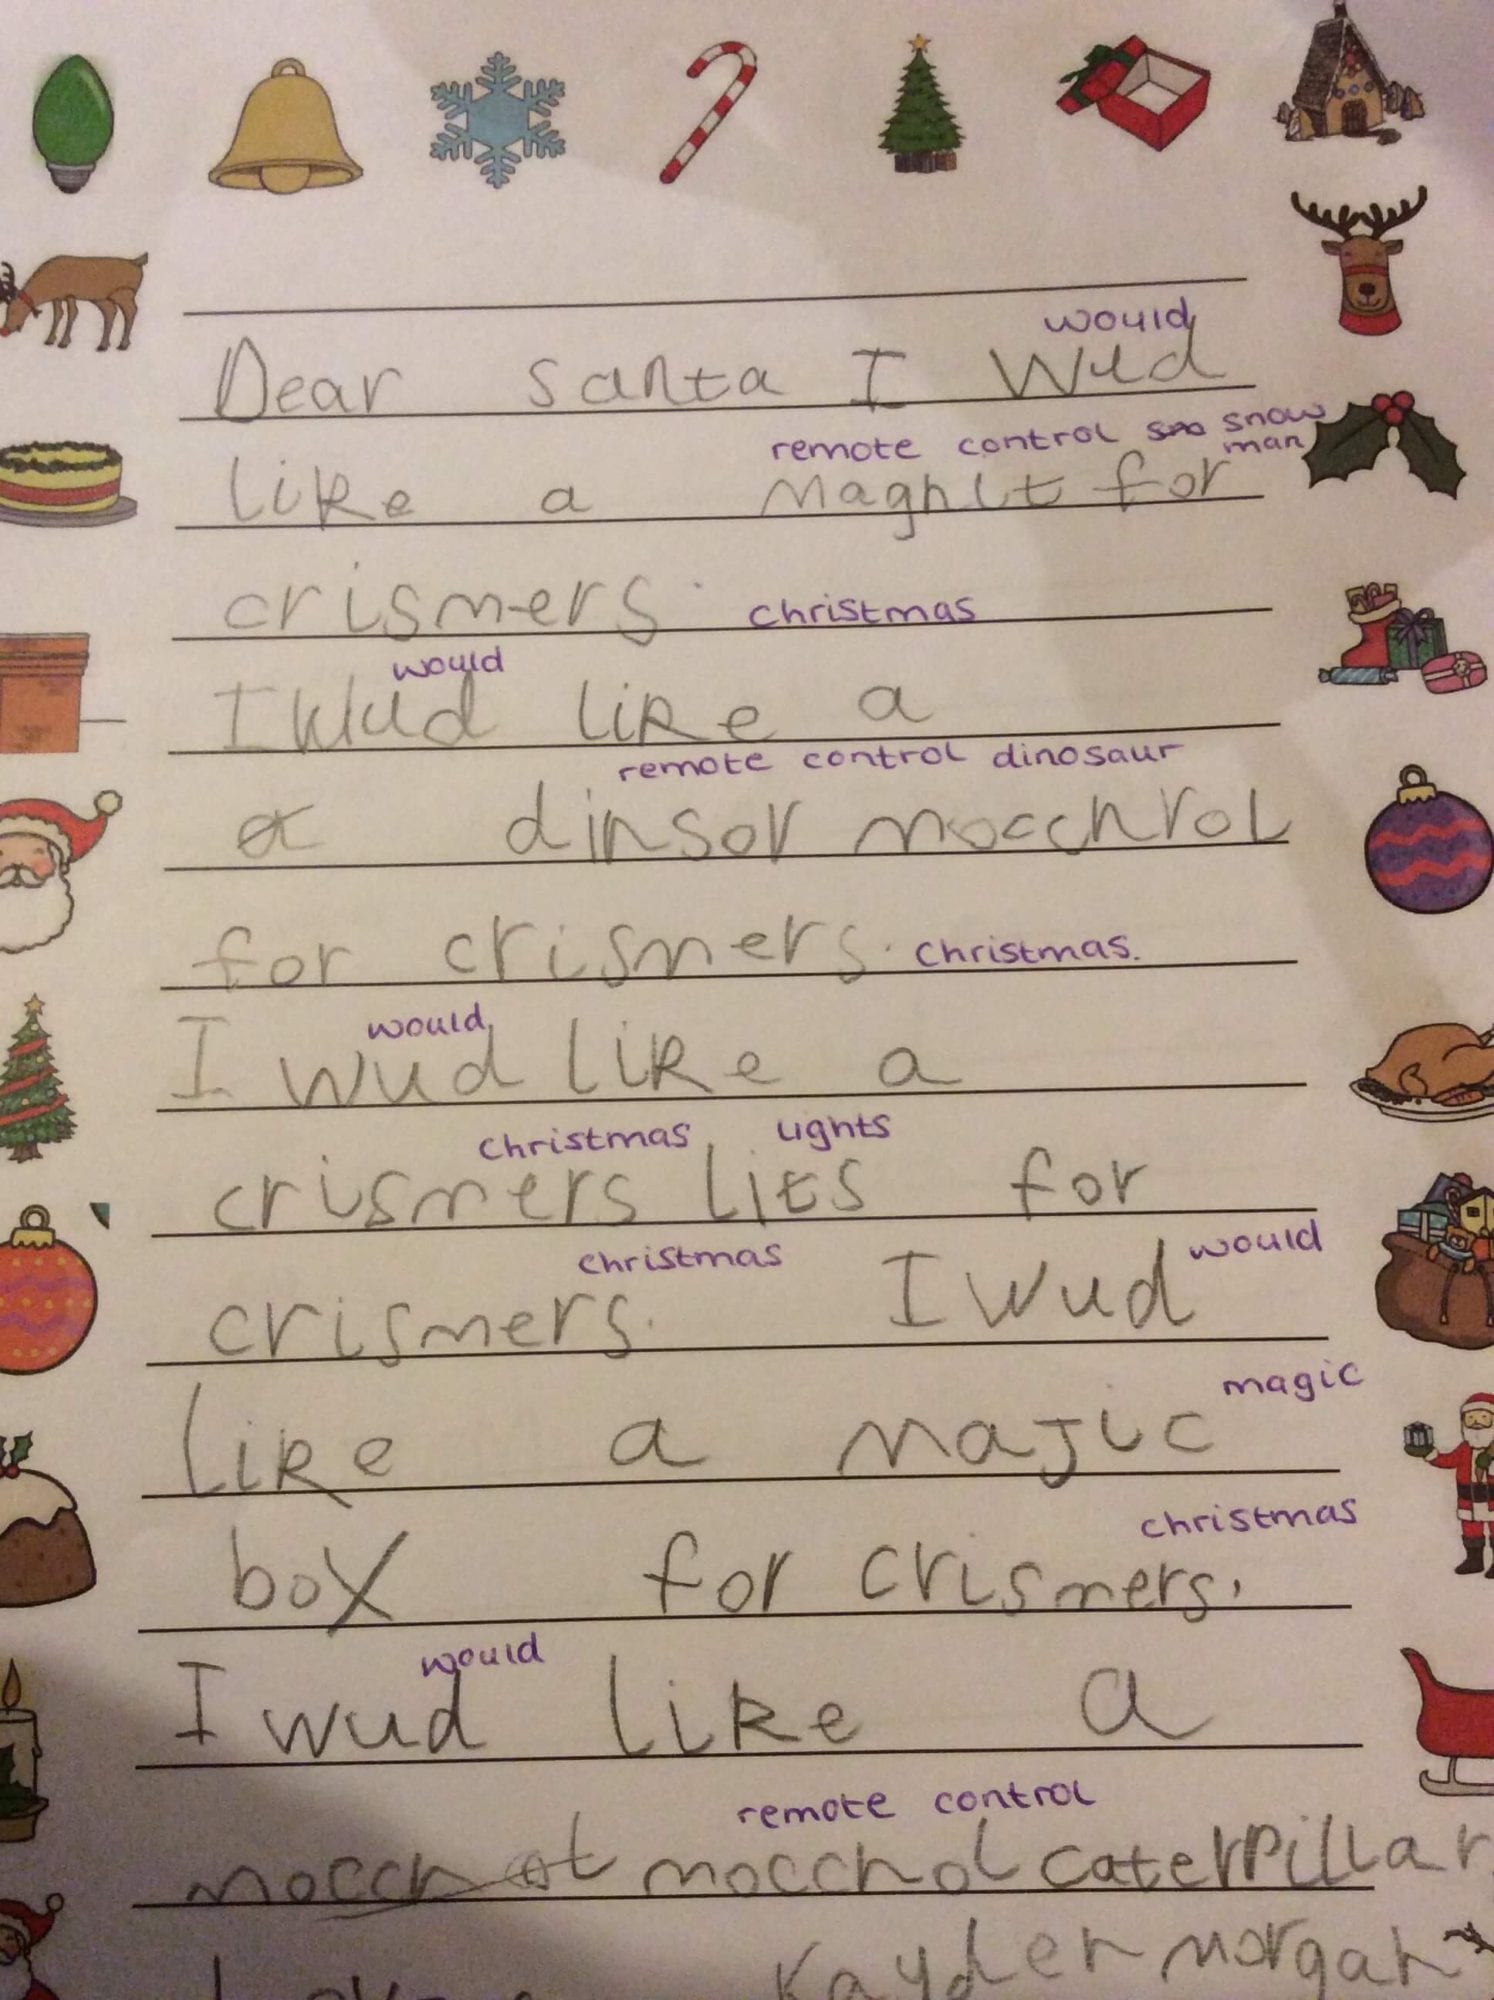 would
Dear santa I Wud
remote control sno snow
man
like a Magnit for
crismers. christmas
would
I Wud like a
remote control dinosaur
a dinsor mocchrol
for crismers. christmas.
would
I wud like a
christmas lights
crismers lits for
christmas would
crismers. I wud
magic
like a majic
christmas
box for crismers.
would
I wud like a
remote control
mocchol caterpillar
Kayden morgan